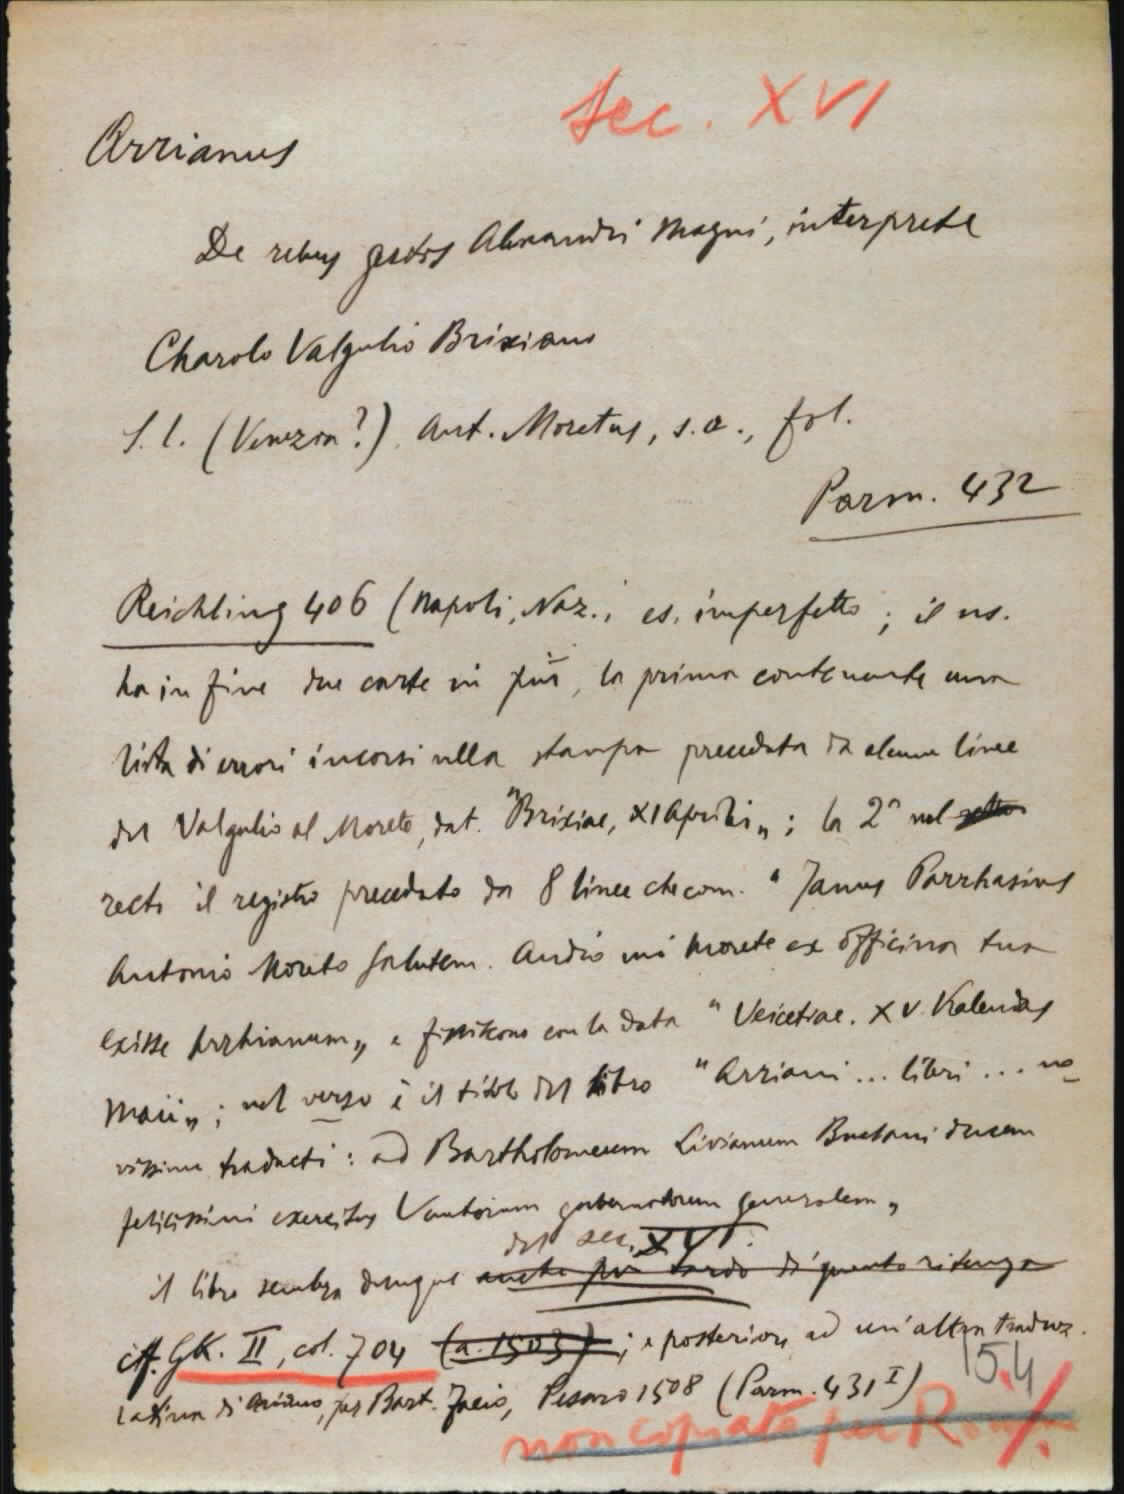 Sec. XVI
Arrianus
De rebus gestis Alexandri Magni, interprete
Charolo Valgulio Brixiano
S. l. (Venezia?). Ant. Moretus, s.a., fol.
Parm. 432
Reichling 406 (Napoli, Naz., es. imperfetto; il ns.
ha in fine due carte in più, la prima contenente una
lista di errori incorsi nella stampa preceduta da alcune linee
del Valgulio al Moreto, dat. "Brixiae, XI Aprilis"; la 2ª nel retto
recto il registro preceduto da 8 linee che com. "Janus Parrhasius
Antonio Moreto salutem. Audio mi Morete ex officina tua
exisse Arrhianum" e finiscono con la data "Veicetiae. XV Kalendas
Maii"; nel verso è il titolo del libro "Arriani ... libri ... no-
vissime traducti: ad Bartholomeum Livianum ducem
felicissimi exercitus Venetorum gubernatorem generalem"
del sec. XVI.
il libro sembra dunque anche più tardo di quanto ritenga
cfr. GK. II, col. 704 (a. 1503); e posteriore ad un'altra traduz.
latina di Arriano, per Bart. Facio, Pesaro 1508 (Parm. 431 I)
154
non copiato per Roma